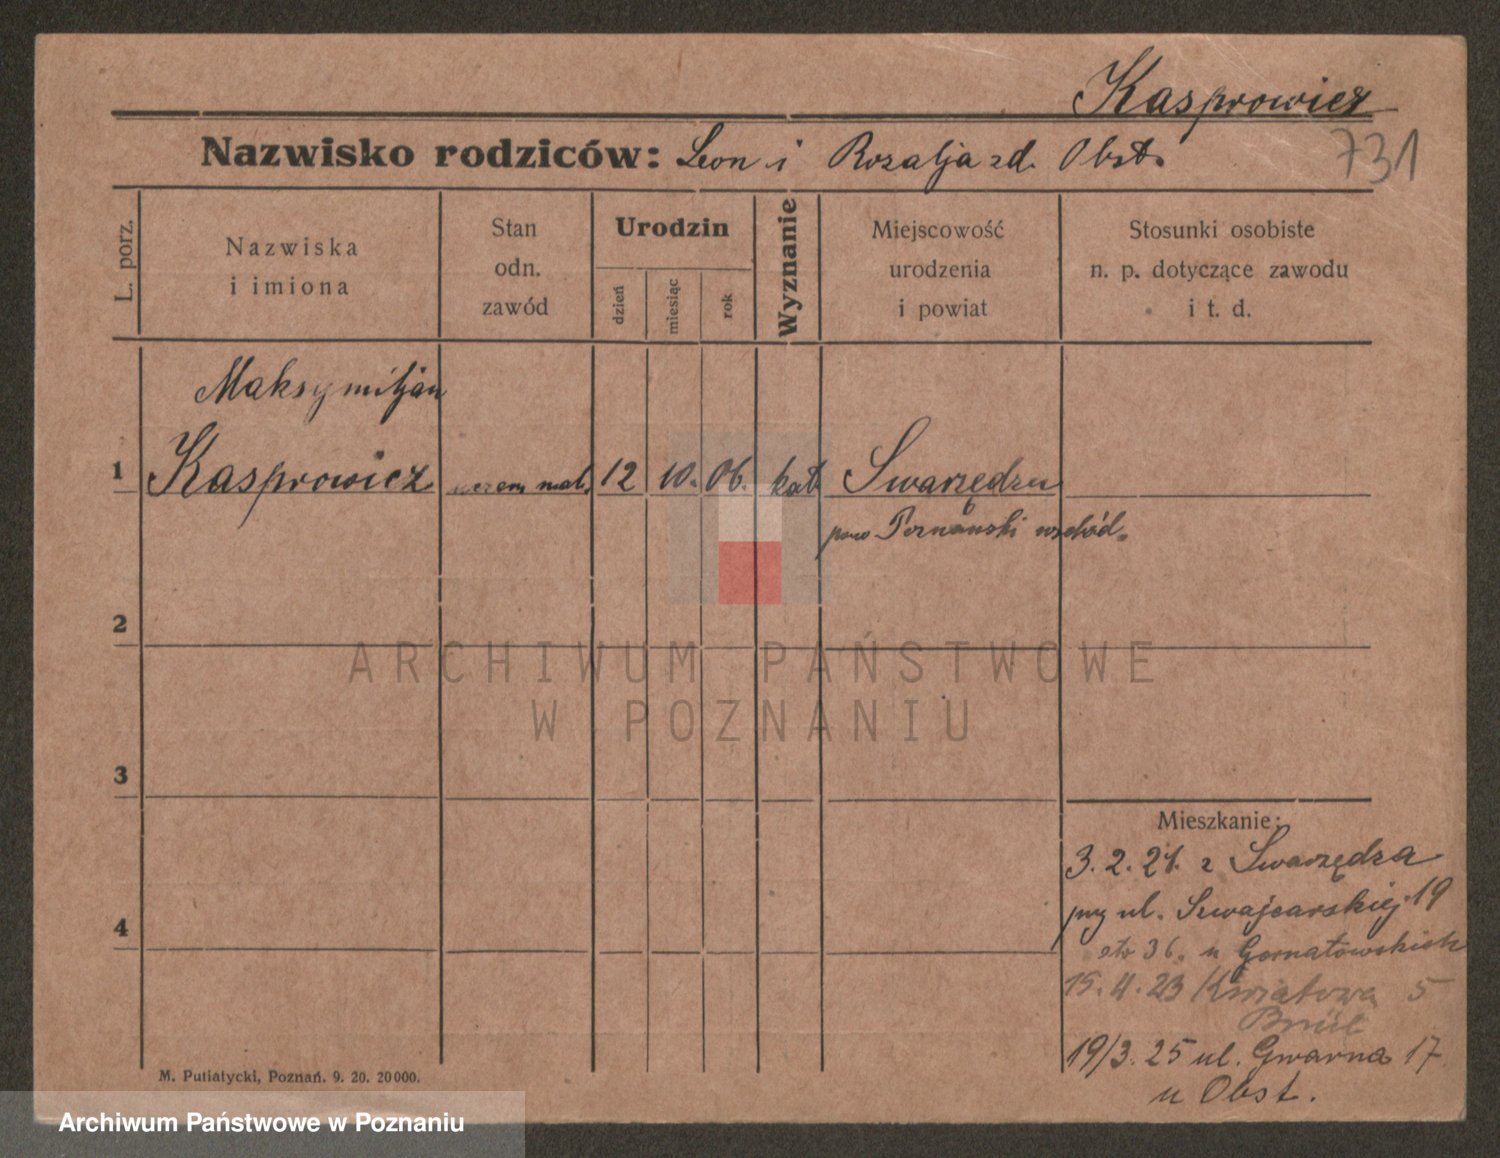 Kasprowicz
731
Nazwisko rodziców: Leon i Rozalja zd. Obst.
L. porz.
Nazwiska
i imiona
Stan
odn.
zawód
Urodzin
dzień
miesiąc
rok
Wyznanie
Miejscowość
urodzenia
i powiat
Stosunki osobiste
n. p. dotyczące zawodu
i t. d.
Maksymiljan
1 Kasprowicz mal. 12 10. 06. kat. Swarzędzu
pow Poznański wschód.
2
3
4
ARCHIWUM PAŃSTWOWE
W POZNANIU
Mieszkanie:
3. 2. 21. z Swarzędza
przy ul. Szwajcarskiej 19
36. u
15. 4. 23 Kwiatowa 5
19/3. 25 ul. Gwarna 17
u Obst.
M. Putiatycki, Poznań. 9. 20. 20000.
Archiwum Państwowe w Poznaniu